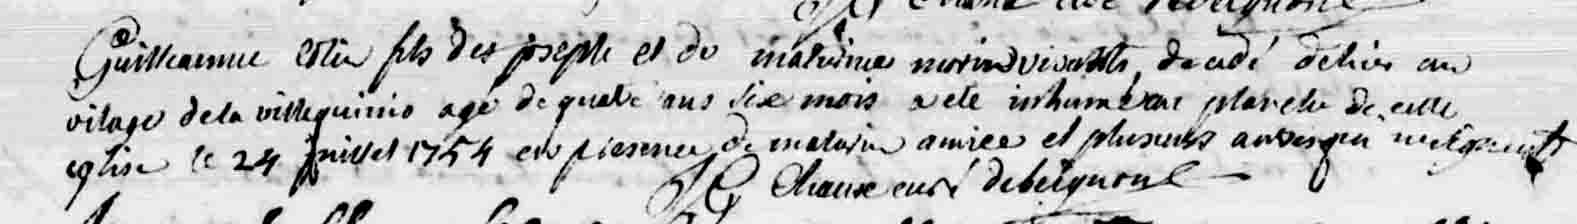 curé de beignon
Guilleaume fils des joseph et de maturine morin vivants, decedé d'hier au
vilage de la villequinio agé de quatre ans six mois a eté inhumé au de cette
eglise le 24 juillet 1754 en presence de maturin et plusieurs autres qui ne signent
curé de beignon